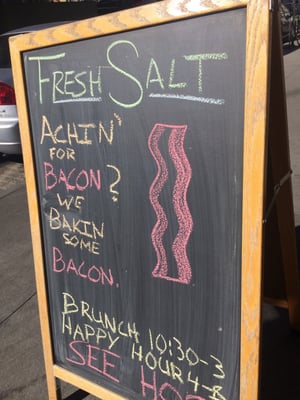 FRESH SALT
ACHIN'
FOR
BACON?
WE
BAKIN
SOME
BACON.
BRUNCH 10:30-3
HAPPY HOUR 4-8
SEE